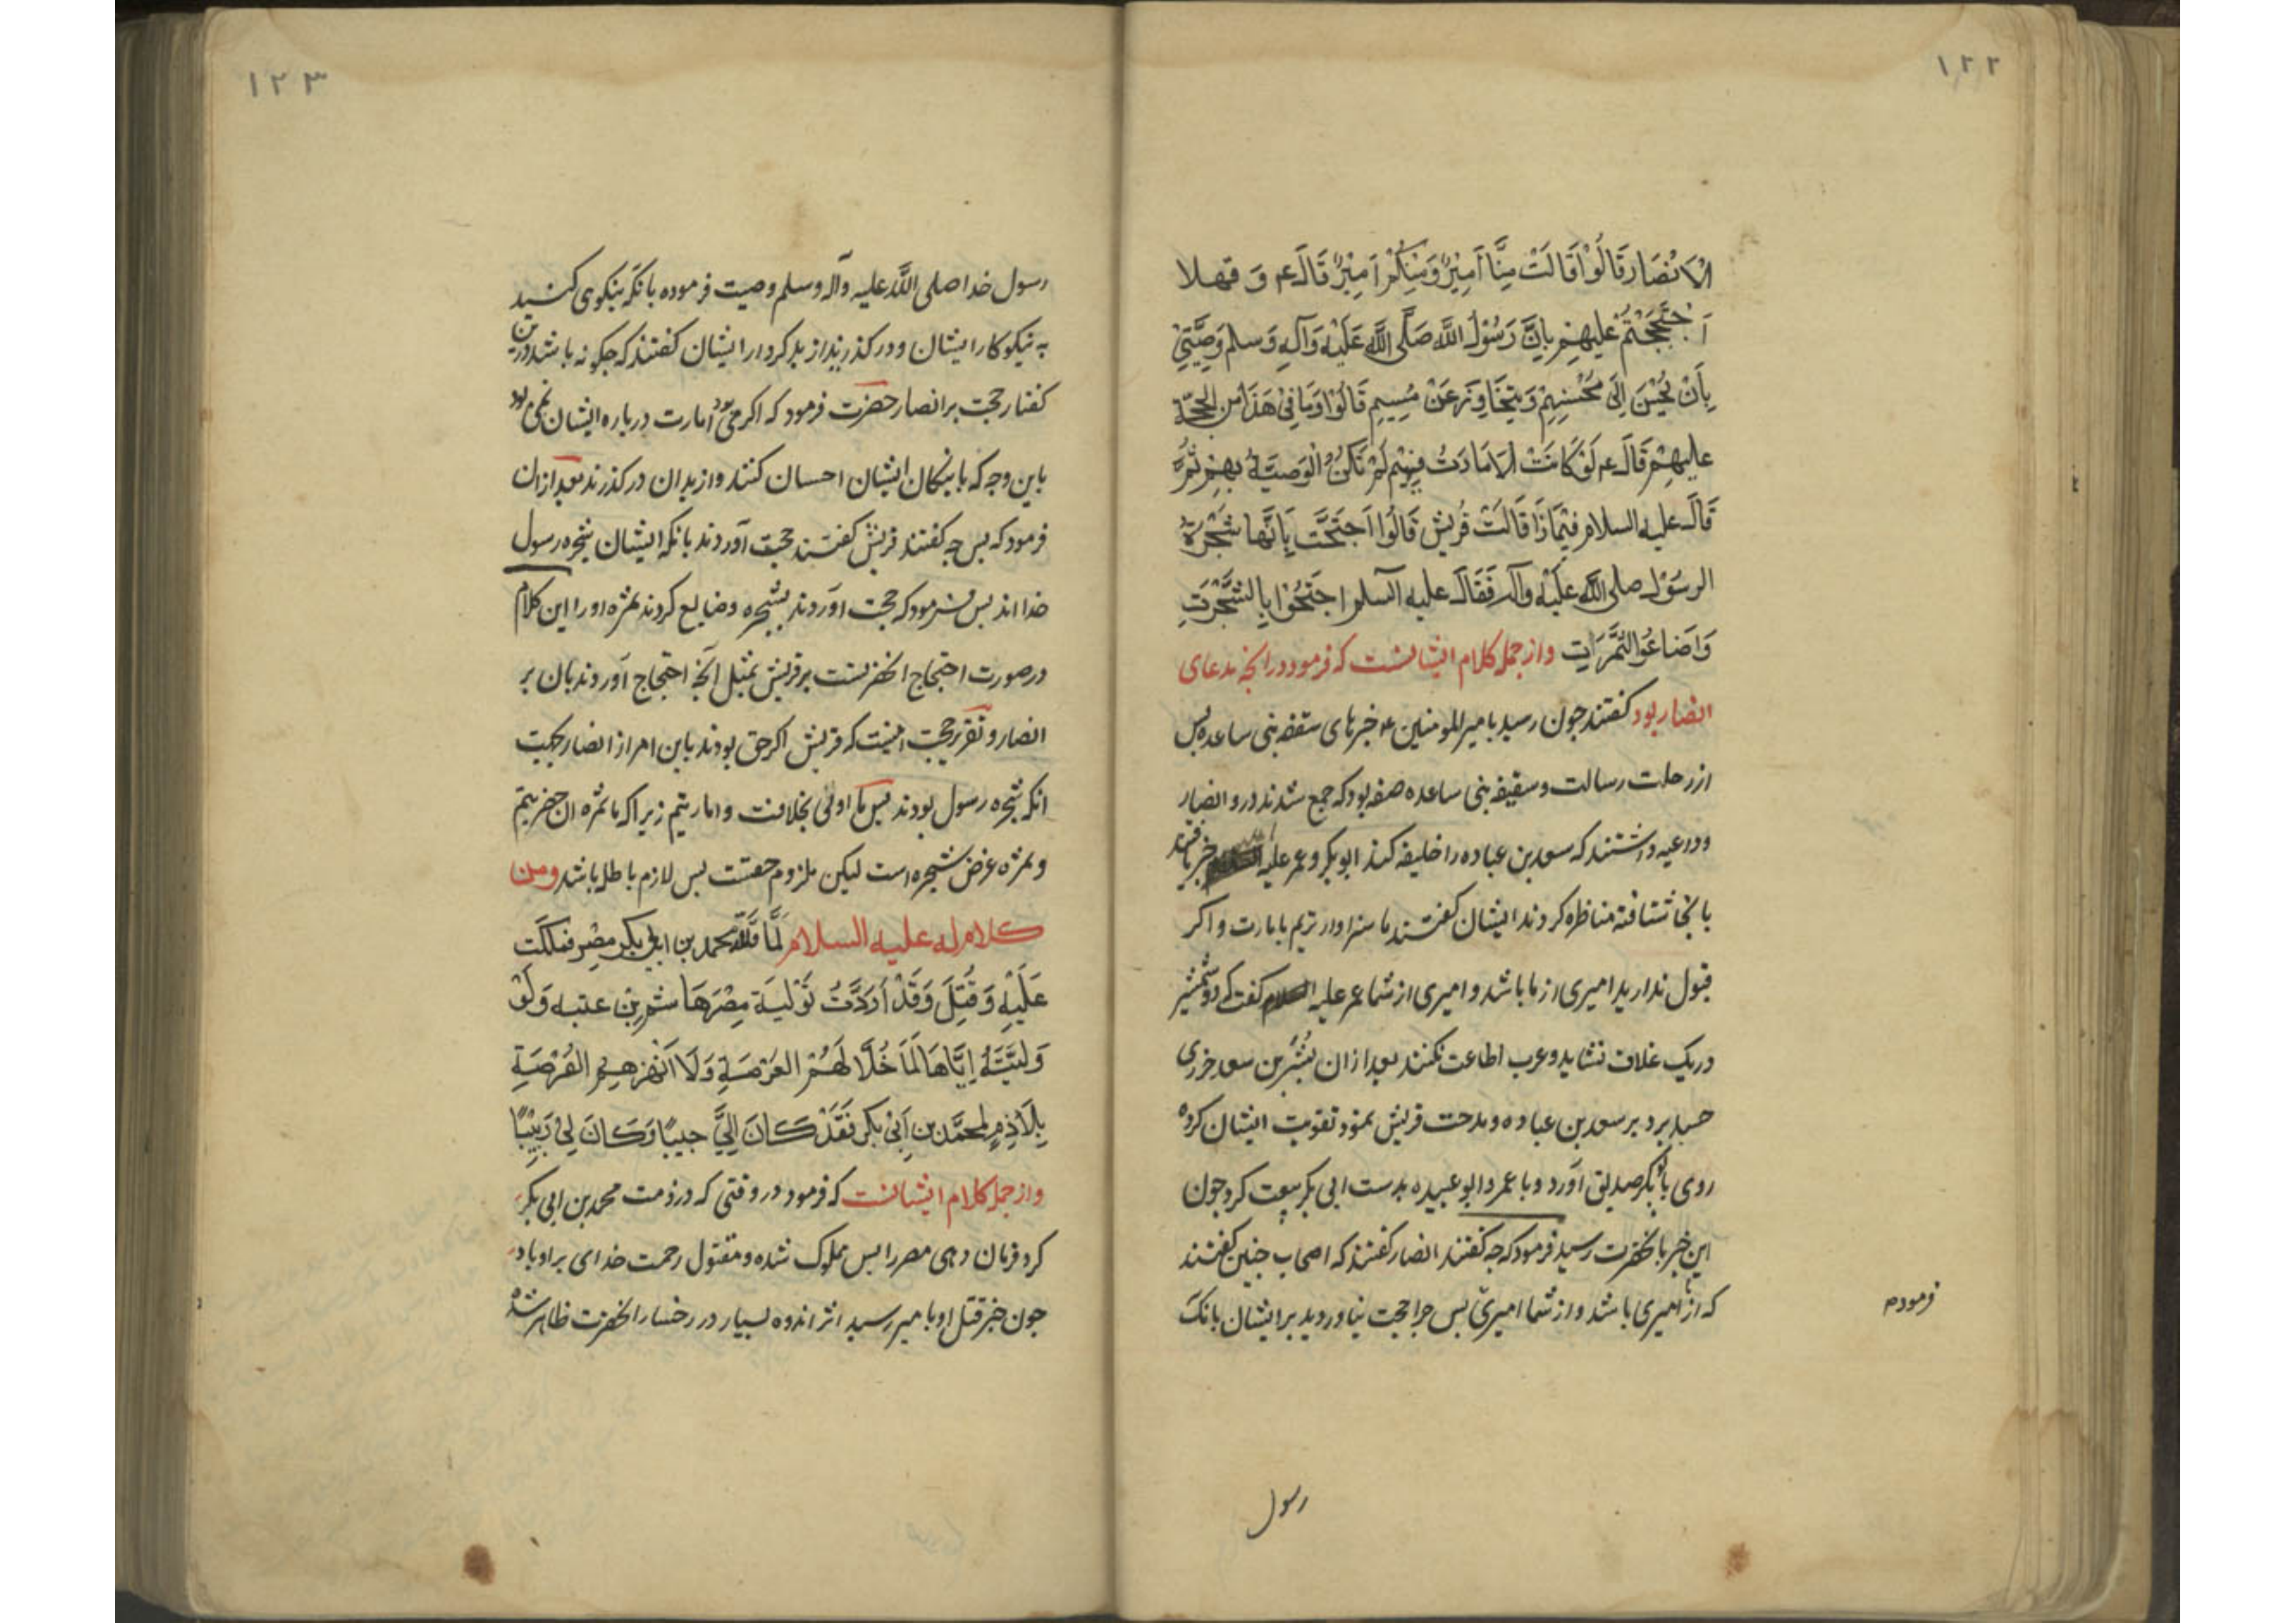 ١٢٢
الْاَنْصَار قَالُوْا قَالَتْ مِنَّا اَمِيْرٌ وَمِنْكُمْ اَمِيْرٌ قَالَ ع م وَ فهلا
اَحْتَجَجْتُمْ عليهِم بِاَنَّ رَسُوْلَ اللَّه صَلَّى اللَّه عَلَيْه وَآلِهِ وَسلم وَصَّيٰ
بِاَنْ يُحْسَنَ اِلَى مُحْسِنِهِمْ وَ يتجَاوَزَ عَنْ مُسِيهِم قَالُوْا وَمَا فِىْ هَذَا من الحجّة
عليهِمْ قَالَ ع م لَوْ كَانَتْ الاَمَارَتُ فِيْهِم لَمْ تَكُنْ الْوَصِيَّةُ بهِم ثُمَّ
قَالَ عليه السلام فَمَاذَا قَالَتْ قُرَيش قَالُوا اَحتَجَّت بِاَنَّها شَجْرَةُ
الرسُوْل صلى اللَّه عَلَيْه وآله فَقَالَ عليه السلم احتَجُّوْا بِالشَّجَرَتِ
وَاَضَاعُوا الثَّمَرَاتِ واز جمله كلام ايشانست كه فرمود در انجه مدعاى
انصار بود كفتند جون رسيد بامير المومنين ع خبرهاى سقفه بنى ساعده پس
از رحلت رسالت و سقيفه بنى ساعده صفه بود كه جمع شدند درو انصار
وداعيه داشتند كه سعد بن عباده را خليفه كنند ابو بكر و عمر عليه خبر يافتند
بانجا شتافته مناظره كردند ايشان كفتند ما سزاوارتريم بامارت و اكر
قبول نداريد اميرى از ما باشد و اميرى از شما عمر عليه السلام كفت كه دو شمشير
در يک غلاف نشايد و عرب اطاعت نكنند بعد از ان بشر بن سعد خزرجى
حسد برد بر سعد بن عباده و مدحت قريش نمود و تقويت ايشان كرده
روى بابو بكر صديق آورد و با عمر و ابو عبيده بدست ابى بكر بيعت كرد جون
اين خبر بانحضرت رسيد فرمود كه جه كفتند انصار كفتند كه اصحاب جنين كفتند
كه از ما اميرى باشد و از شما اميرى پس جرا حجت نياورديد بر ايشان بانكه
فرموده
رسول
١٢٣
رسول خدا صلى اللَّه عليه وآله وسلم وصيت فرموده بانكه نيكوى كنيد
به نيكوكار ايشان و در كذرند از بدكردار ايشان كفتند كه جكونه باشد درين
كفتار حجت بر انصار حضرت فرمود كه اكر مى بود امارت درباره ايشان نمى بود
باين وجه كه با نيكان ايشان احسان كنند و از بدان در كذرند بعد ازان
فرمود كه پس جه كفتند قريش كفتند حجت آوردند بانكه ايشان شجره رسول
خدا اند پس فرمود كه حجت آوردند بشجره وضايع كردند ثمره او را اين كلام
در صورت احتجاج انحضرتست بر قريش بمثل انچه احتجاج آوردند بان بر
انصار و تقرير حجت اينست كه قريش اكر حق بودند باين امر از انصار بجهت
انكه شجره رسول بودند پس ما اولى بخلافت و اماريتم زيرا كه ما ثمره ان حضرتيم
و ثمره غرض شجره است ليكن ملزوم حقست پس لازم باطل باشد ومن
كلام له عليه السلام لَمَّا قَلَّدَ محمد بن ابى بكر مِصْر فملكت
عَلَيْهِ وَقُتِلَ وَقَدْ اَرَدْتُ تَوْلِيَةَ مِصْرَ هَاشم بِن عتبه وَلَوْ
وَلَّيْتُهُ اِيَّاهَا لَمَا خَلَّا لَهُمْ العَرْصَةِ وَلَا اَنْهَزَهِمِ الْفُرْصَةِ
بِلَا ذِمٍ لمحَمَّد بن اَبى بكر فَقَدْ كَانَ اِلَيَّ حبيبًا وَكَانَ لِى رَبِيْبًا
واز جمله كلام ايشانست كه فرمود در وقتى كه در ذمت محمد بن ابى بكر
كرد فرمان دهى مصر را پس مملوک شده و مقتول رحمت خداى بر او باد
جون خبر قتل او با مير رسيد اثر اندوه بسيار در رخسار انحضرت ظاهر شده